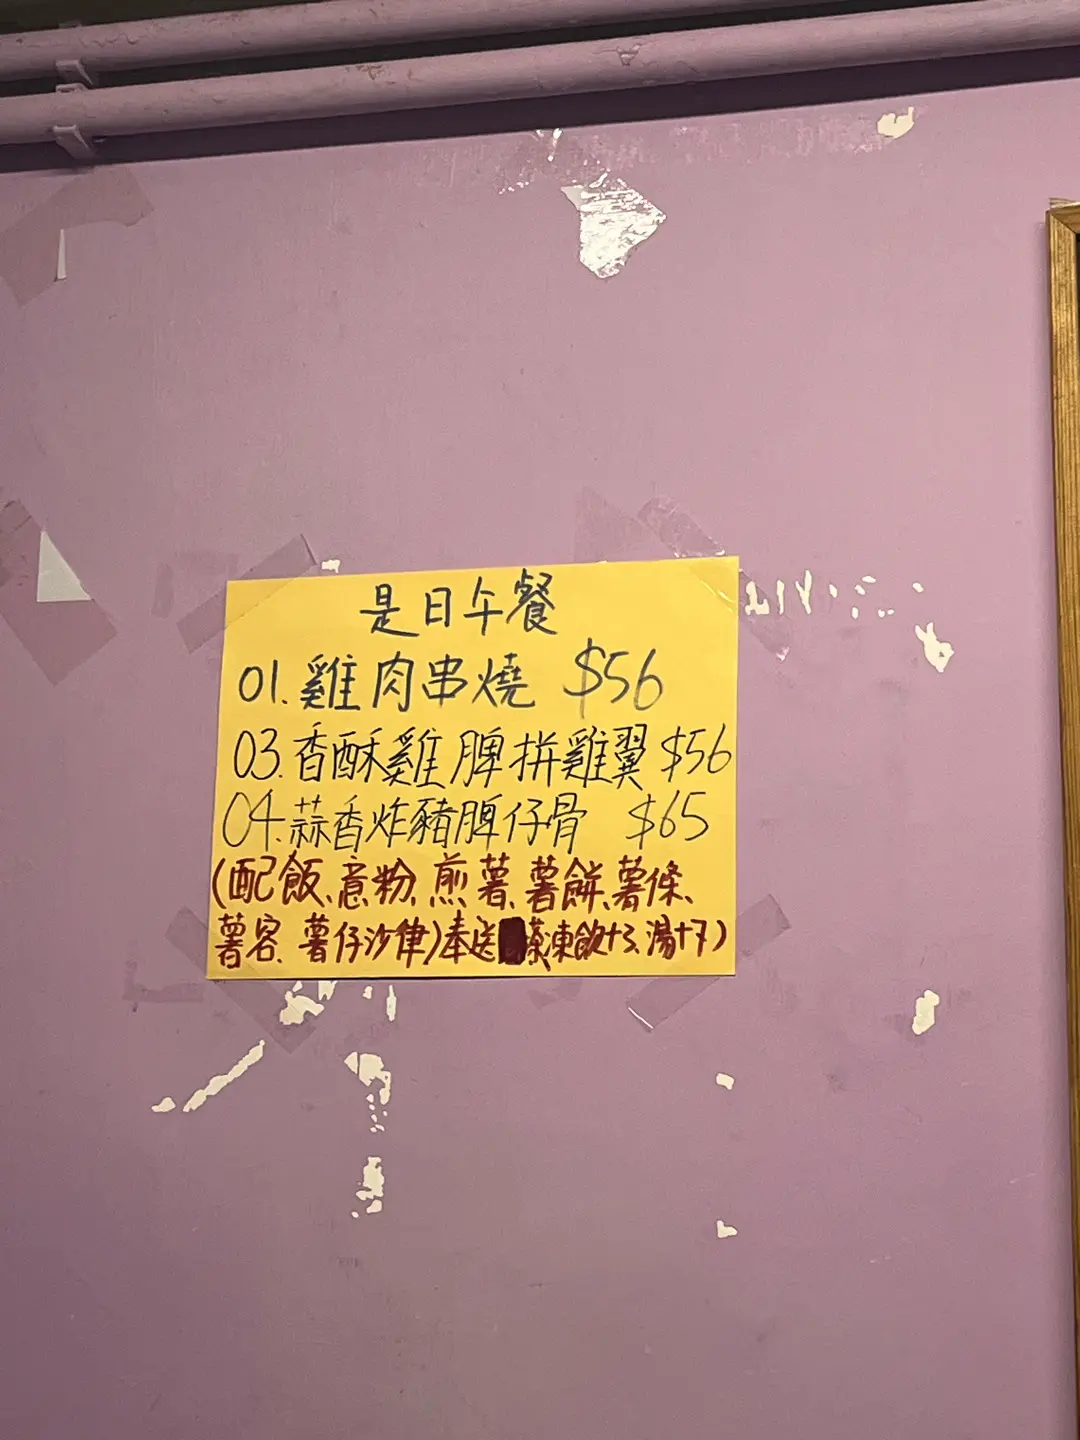 是日午餐
01. 雞肉串燒 $56
03. 香酥雞脾拼雞翼 $56
04. 蒜香炸豬脾仔骨 $65
(配飯、意粉、煎薯、薯餅、薯條、
薯容、薯仔沙律)奉送茶凍飲+3、湯+7)